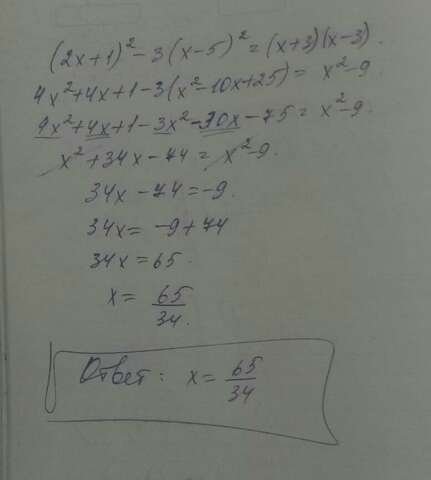 (2x+1)² - 3(x-5)² = (x+3)(x-3).
4x²+4x+1-3(x²-10x+25) = x²-9.
4x²+4x+1-3x²-30x-75 = x²-9.
x²+34x-74 = x²-9.
34x-74=-9.
34x=-9+74
34x=65.
x= 65/34.
Ответ: x= 65/34